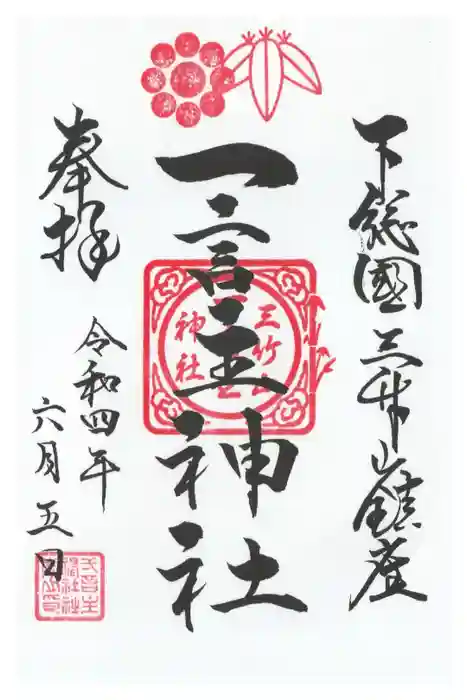 下総國三竹山鎮座
一言主神社
三竹山
神社
奉拝
令和四年
六月五日